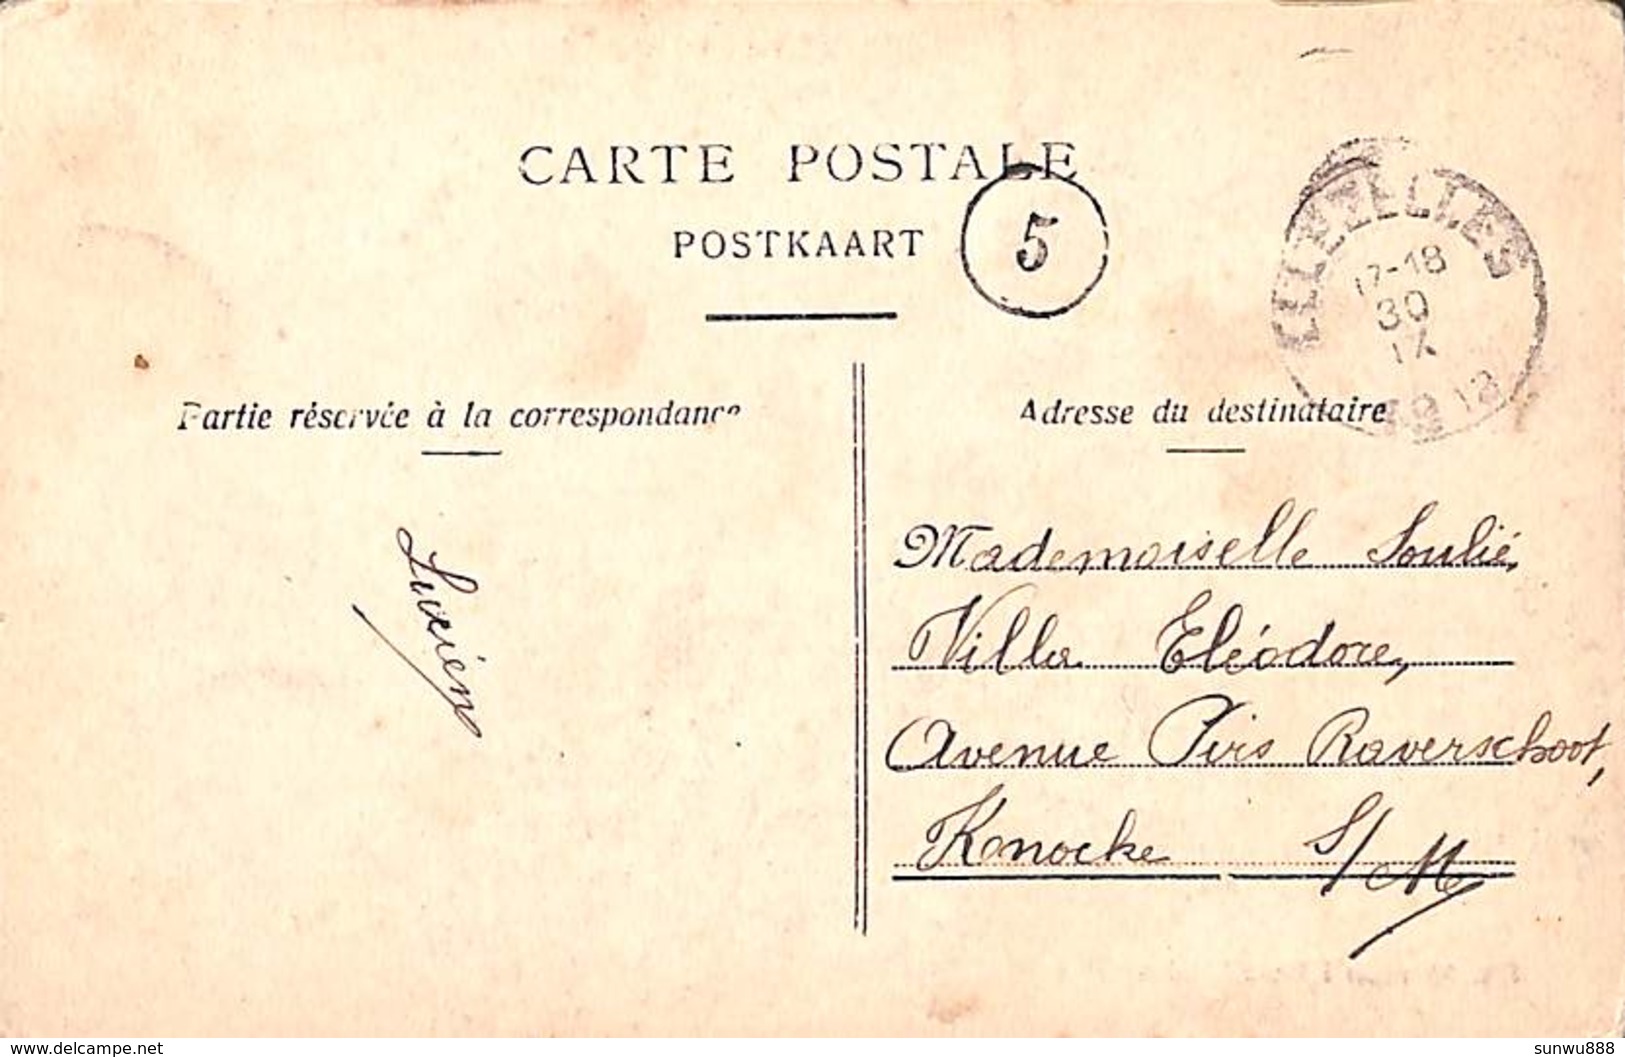 CARTE POSTALE
POSTKAART
5
ELLEZELLES
17-18
30
IX
1912
Partie réservée à la correspondance
Adresse du destinataire
Lucien
Mademoiselle Soulié,
Villa Eléodore,
Avenue Pirs Raverschoot,
Knocke S/M
delcampe.net
sunwu888